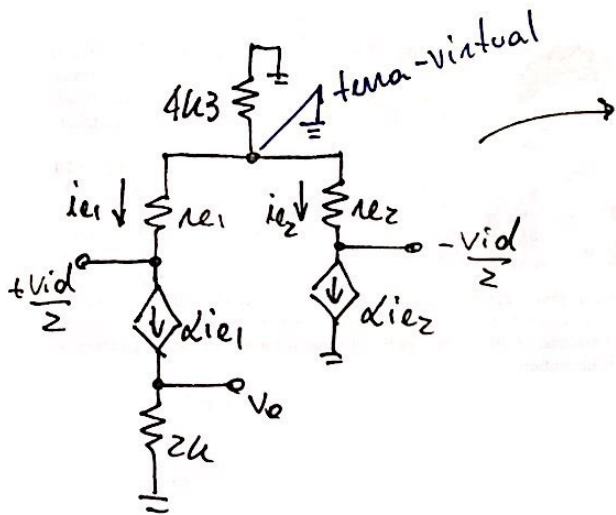 terra-virtual
4k3
ie1 ↓
re1
ie2 ↓
re2
+vid/2
-vid/2
αie1
αie2
vo
2k